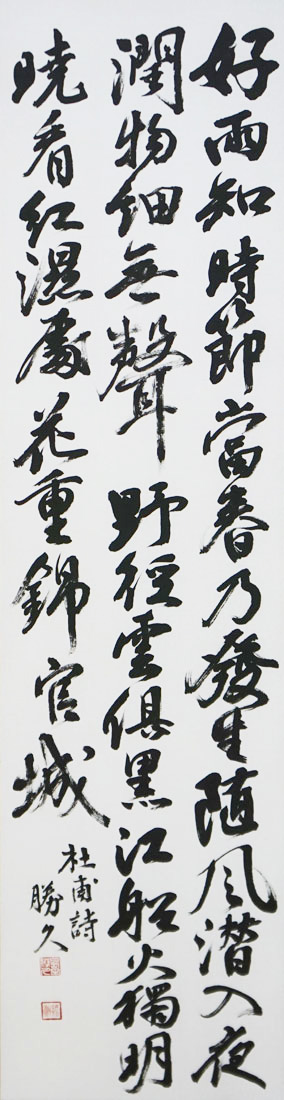 好雨知時節當春乃發生随風潜入夜
潤物細無聲野徑雲俱黒江船火獨明
曉看紅濕處花重錦官城
杜甫詩
勝久